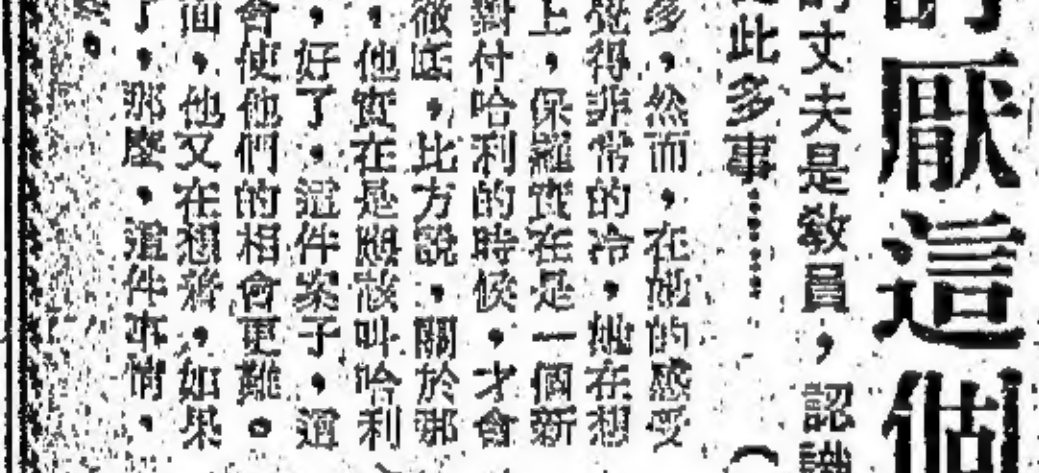 厭這個
丈夫是敎員，認識
此多事……（
多，然而，在她的感受
覺得非常的冷，她在想
上，保羅實在是一個新
對付哈利的時候，才會
徹底，比方說，關於那
，他實在是應該叫哈利
，好了，這件案子，這
會使他們的相會更難。
面，他又在想着，如果
了，那麼，這件事情，